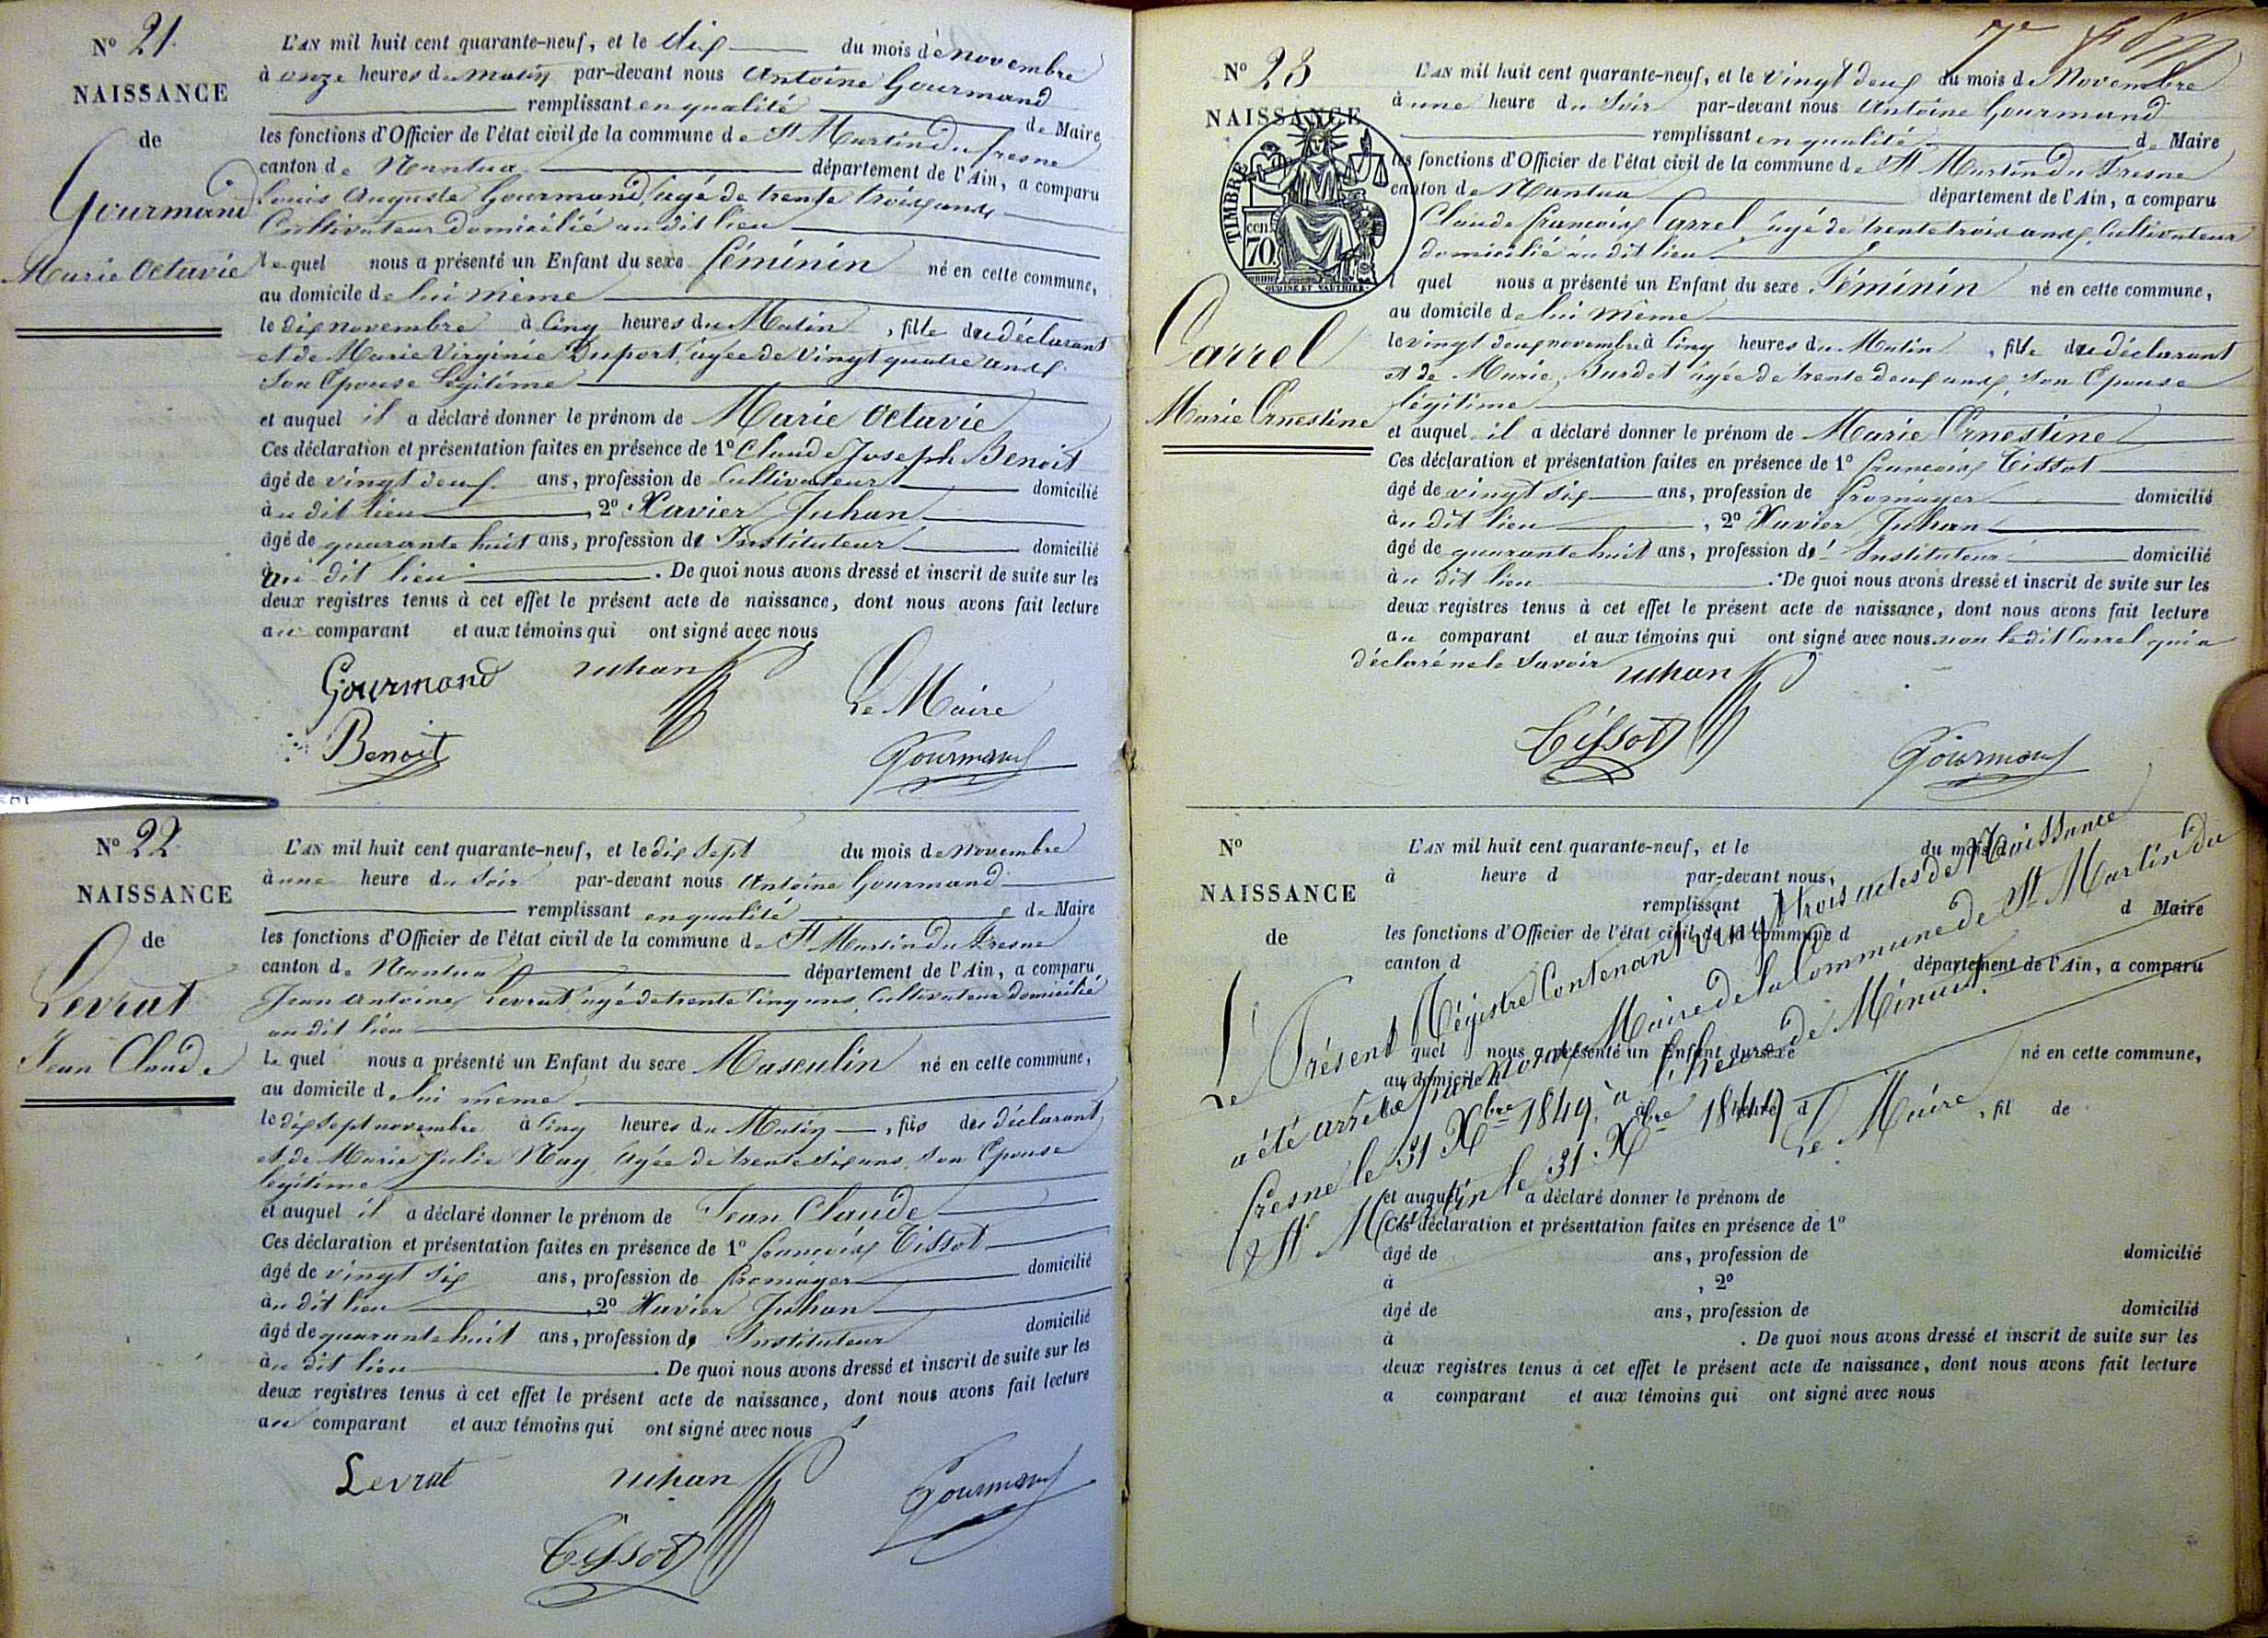 N° 21
NAISSANCE
de
Gourmand
Marie Octavie
L'AN mil huit cent quarante-neuf, et le dix du mois de Novembre
à onze heures du matin par-devant nous Antoine Gourmand
remplissant en qualité de Maire
les fonctions d'Officier de l'état civil de la commune de St Martin du fresne
canton de Nantua département de l'Ain, a comparu
Louis Auguste Gourmand, âgé de trente trois ans
Cultivateur domicilié au dit lieu
lequel nous a présenté un Enfant du sexe féminin né en cette commune,
au domicile de lui même
le dix novembre à Cinq heures du Matin, fille du déclarant
et de Marie Virginie Duport, âgée de vingt quatre ans
son Epouse légitime
et auquel il a déclaré donner le prénom de Marie Octavie
Ces déclaration et présentation faites en présence de 1° Claude Joseph Benoit
âgé de vingt deux ans, profession de Cultivateur domicilié
au dit lieu, 2° Xavier Juhan
âgé de quarante huit ans, profession d' Instituteur domicilié
au dit lieu. De quoi nous avons dressé et inscrit de suite sur les
deux registres tenus à cet effet le présent acte de naissance, dont nous avons fait lecture
au comparant et aux témoins qui ont signé avec nous
Gourmand Juhan Le Maire
Benoit Gourmand
N° 22
NAISSANCE
de
Levrat
Jean Claude
L'AN mil huit cent quarante-neuf, et le dix sept du mois de novembre
à une heure du Soir par-devant nous Antoine Gourmand
remplissant en qualité de Maire
les fonctions d'Officier de l'état civil de la commune de St Martin du Fresne
canton de Nantua département de l'Ain, a comparu
Jean Antoine Levrat âgé de trente Cinq ans, Cultivateur domicilié
au dit lieu
lequel nous a présenté un Enfant du sexe Masculin né en cette commune,
au domicile de lui même
le dix sept novembre à Cinq heures du Matin, fils du déclarant
et de Marie Julie Nay, âgée de trente six ans, son Epouse
légitime
et auquel il a déclaré donner le prénom de Jean Claude
Ces déclaration et présentation faites en présence de 1° françois Tissot
âgé de vingt six ans, profession de fromager domicilié
au dit lieu, 2° Xavier Juhan
âgé de quarante huit ans, profession d' Instituteur domicilié
au dit lieu. De quoi nous avons dressé et inscrit de suite sur les
deux registres tenus à cet effet le présent acte de naissance, dont nous avons fait lecture
au comparant et aux témoins qui ont signé avec nous
Levrat Juhan Gourmand
Tissot
7e
N° 23
NAISSANCE
TIMBRE
70 cen.
OUDINE ET VAUTHIER
Carrel
Marie Ernestine
L'AN mil huit cent quarante-neuf, et le vingt deux du mois de Novembre
à une heure du Soir par-devant nous Antoine Gourmand
remplissant en qualité de Maire
les fonctions d'Officier de l'état civil de la commune de St Martin du Fresne
canton de Nantua département de l'Ain, a comparu
Claude françois Carrel, âgé de trente trois ans, Cultivateur
domicilié au dit lieu
l quel nous a présenté un Enfant du sexe Féminin né en cette commune,
au domicile de lui même
le vingt deux novembre à Cinq heures du Matin, fille du déclarant
et de Marie, Jurdet âgée de trente deux ans, son Epouse
légitime
et auquel il a déclaré donner le prénom de Marie Ernestine
Ces déclaration et présentation faites en présence de 1° françois Tissot
âgé de vingt six ans, profession de fromager domicilié
au dit lieu, 2° Xavier Juhan
âgé de quarante huit ans, profession d' Instituteur domicilié
au dit lieu. De quoi nous avons dressé et inscrit de suite sur les
deux registres tenus à cet effet le présent acte de naissance, dont nous avons fait lecture
au comparant et aux témoins qui ont signé avec nous non le dit Carrel qui a
déclaré ne le savoir Juhan
Tissot Gourmand
N°
NAISSANCE
de
L'AN mil huit cent quarante-neuf, et le du mois d
à heure d par-devant nous,
remplissant d Maire
les fonctions d'Officier de l'état civil de la commune d
canton d département de l'Ain, a comparu
quel nous a présenté un Enfant du sexe né en cette commune,
au domicile d
le à heure d, fil de
et auquel a déclaré donner le prénom de
Ces déclaration et présentation faites en présence de 1°
âgé de ans, profession de domicilié
à, 2°
âgé de ans, profession de domicilié
à. De quoi nous avons dressé et inscrit de suite sur les
deux registres tenus à cet effet le présent acte de naissance, dont nous avons fait lecture
a comparant et aux témoins qui ont signé avec nous
Le Présent Régistre Contenant vingt trois actes de Naissance
a été arrêté par nous Maire de la Commune de St Martin du
fresne le 31 Xbre 1849, à l'heure de Minuit.
St Martin le 31 Xbre 1849
Le Maire